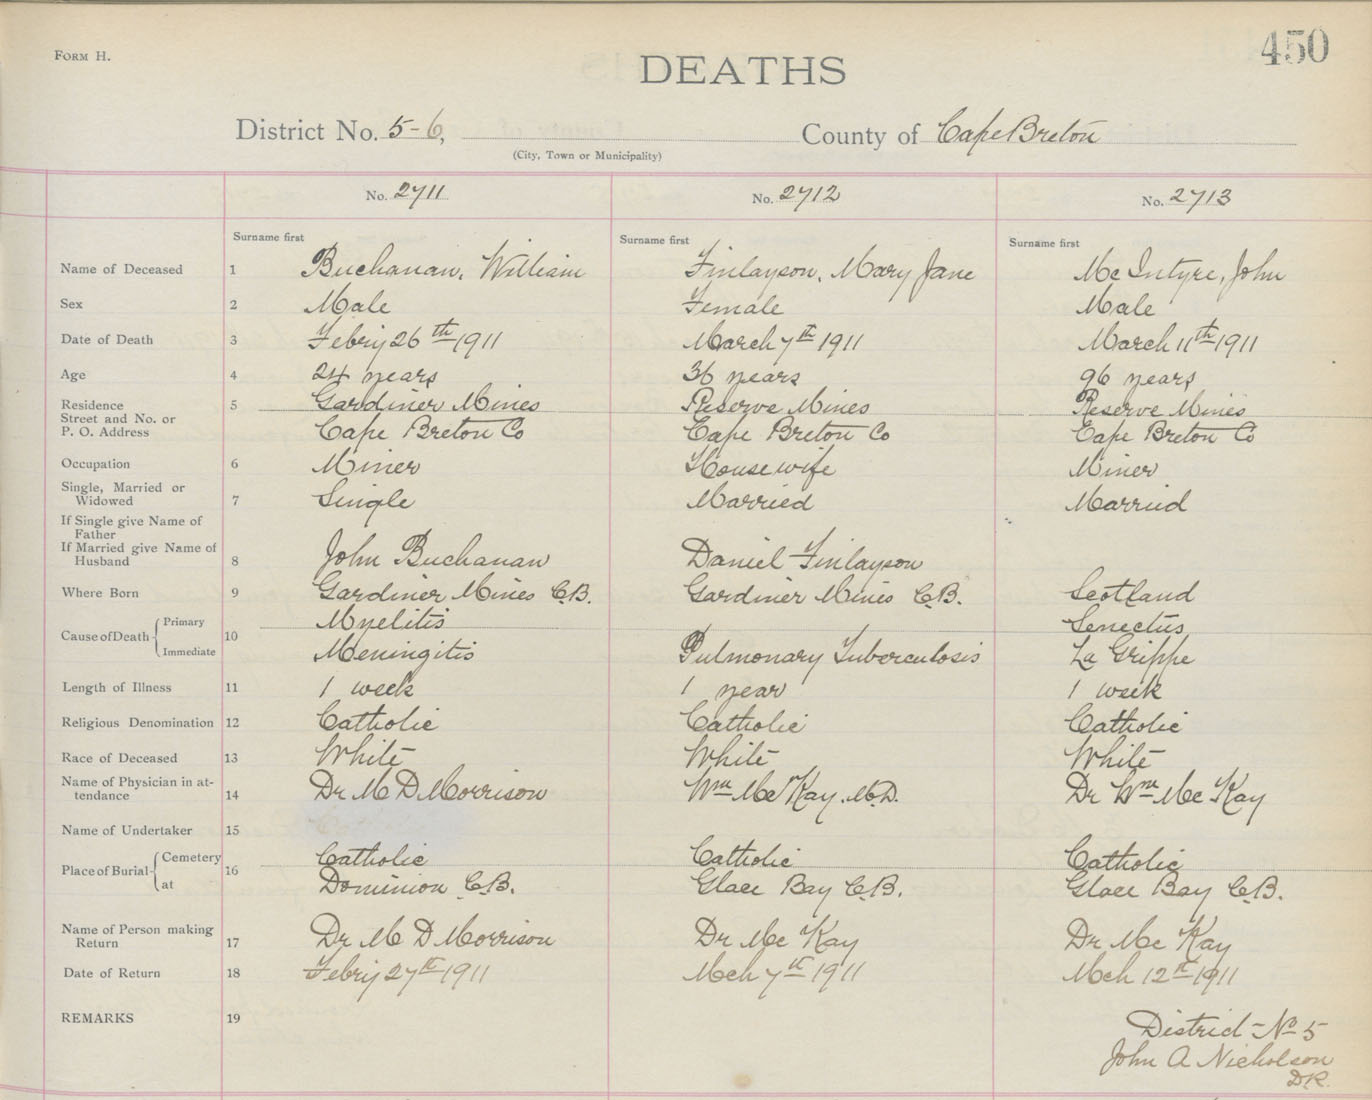 FORM H.
450
DEATHS
District No. 5-6, County of Cape Breton
(City, Town or Municipality)
No. 2711 No. 2712 No. 2713
Surname first Surname first Surname first
Name of Deceased 1 Buchanan, William Finlayson, Mary Jane Mc Intyre, John
Sex 2 Male Female Male
Date of Death 3 Febry 26th 1911 March 7th 1911 March 11th 1911
Age 4 24 years 36 years 96 years
Residence 5 Gardiner Mines Reserve Mines Reserve Mines
Street and No. or
P. O. Address Cape Breton Co Cape Breton Co Cape Breton Co
Occupation 6 Miner Housewife Miner
Single, Married or
Widowed 7 Single Married Married
If Single give Name of
Father
If Married give Name of
Husband 8 John Buchanan Daniel Finlayson
Where Born 9 Gardiner Mines C.B. Gardiner Mines C.B. Scotland
Cause of Death 10 Primary Myelitis Senectus
Immediate Meningitis Pulmonary Tuberculosis La Grippe
Length of Illness 11 1 week 1 year 1 week
Religious Denomination 12 Catholic Catholic Catholic
Race of Deceased 13 White White White
Name of Physician in at-
tendance 14 Dr M D Morrison Wm Mc Kay, M.D. Dr Wm Mc Kay
Name of Undertaker 15
Place of Burial 16 Cemetery Catholic Catholic Catholic
at Dominion C.B. Glace Bay C.B. Glace Bay C.B.
Name of Person making
Return 17 Dr M D Morrison Dr Mc Kay Dr Mc Kay
Date of Return 18 Febry 27th 1911 Mch 7th 1911 Mch 12th 1911
REMARKS 19
District No 5
John A Nicholson
DR.